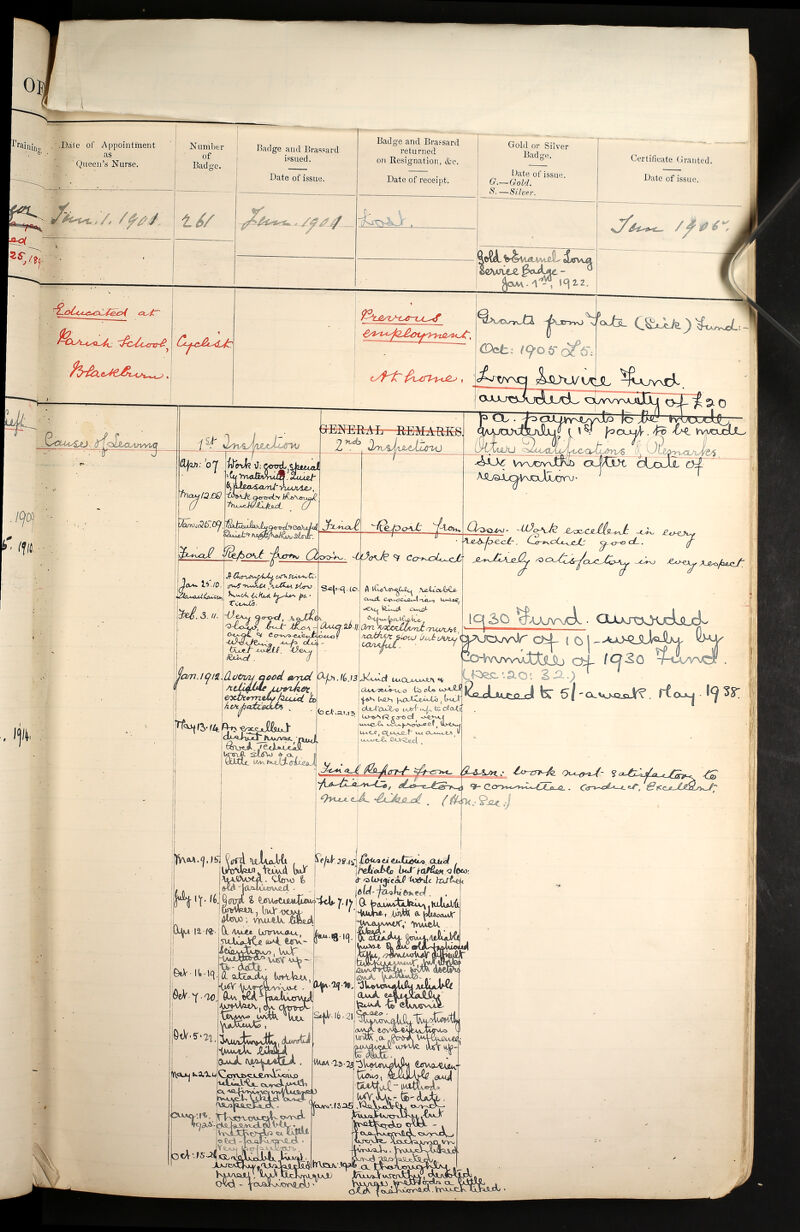 OF
Training.
Date of Appointment
as
Queen's Nurse.
Number
of
Badge.
Badge and Brassard
issued.
Date of issue.
Badge and Brassard
returned
on Resignation, &c.
Date of receipt.
Gold or Silver
Badge.
Date of issue.
G.—Gold.
S.—Silver.
Certificate Granted.
Date of issue.
Jan. 1. 1901.
261
Jan. 1901
Lost.
1905.
Gold & Enamel Long
Service Badge -
Jan. 1st, 1922.
Educated at
Parish School,
Blackburn.
Cyclist
Previous
employment.
At home.
Grants from Tate (Sick) Fund:-
Oct: 1905 £5:
Long Service Fund.
awarded annuity of £20
p a. payments to be made
quarterly (1st payt. to be made
six months after date of
resignation.
GENERAL REMARKS.
Cause of Leaving
1st Inspection
2nd Inspection
Other Qualifications & Remarks
Apr: '07
Work v: good, special
maternity. Quiet
& pleasant nurse.
May 12.08
Work good & thorough
much liked
Jan: 25.09
Particularly good & careful
Quiet & rather slow.
Final Report from Assn. Work excellent in every
respect. Conduct good.
Final Report from Assn. Work & conduct entirely satisfactory in every respect
Jan 25.10.
A thoroughly conscienti-
ous nurse, rather slow
much liked by her pa-
tients.
Sep. 9.10.
A thoroughly reliable
and conscientious nurse,
very kind and
sympathetic.
Feb. 3. 11.
Very good, rather
slow, but thor-
ough & conscientious
trict well. Very
kind.
Aug 26.11
An excellent nurse,
rather slow but very
careful.
1930 Fund. awarded
grant of 10/- weekly by
Committee of 1930 Fund.
(Dec: 20: 32.)
Reduced to 5/- a week. May. 1938.
Jan. 1912.
A very good and
reliable worker
extremely kind to
her patients.
Apr. 16.13
Kind manner &
anxious to do well
for her patients, but
details not up to date
Oct. 21.13
Work good, very
much improved, very
nice, quiet manner,
much liked.
May 13.14
An excellent
district nurse, much
loved. Technical
work slow & a
little unmethodical
Final Report from Assn: Work most satisfactory to
patients, doctors & committee. Conduct, Excellent,
much liked. (Hon: Sec:)
Mar. 9. 15
Good reliable
worker, kind but
reserved. Slow &
old-fashioned.
Sept 28.15
Conscientious and
reliable but rather slow.
& surgical work rather
old-fashioned.
July 17. 16.
Good & conscientious
worker, but very
slow; much liked
Feb 7.17
A painstaking, reliable
nurse, with a pleasant
manner, much
liked.
Apr 12.18.
A nice woman,
reliable and con-
scientious, but
methods not up-
to-date.
Jan. 8.19.
A steady going, reliable
nurse of an old-fashioned
type, somewhat difficult
temperament, but works
smoothly with doctors
and patients.
Oct. 16.19.
A steady worker,
not progressive.
Apr. 29.20.
Thoroughly reliable
and especially
kind to chronic
cases.
Oct. 7. 20.
An old-fashioned
worker, on good
terms with her
patients.
Sept. 16. 21
Thoroughly trustworthy
and conscientious
with a good influence,
surgical work not up-
to date.
Oct. 5. 22.
Trustworthy, devoted,
much liked
and respected.
Mar. 23.23
Thoroughly conscien-
tious, reliable and
tactful - methods
not up-to-date.
May 2.24
Conscientious
reliable and with
a refining influence
much liked and
respected.
Jan: 13.25
Reliable and
trustworthy, but
methods old
fashioned and
work lacking in
finish. Much liked
and respected
Aug: 18.
1925.
Thorough and
dependable.
Methods a little
old-fashioned.
Very popular.
Oct: 15.26
a reliable, trust
worthy, respected
nurse, but technique
old-fashioned.
Mar: 1926
a thoroughly
trustworthy devoted
nurse, methods a little
old fashioned, much liked.